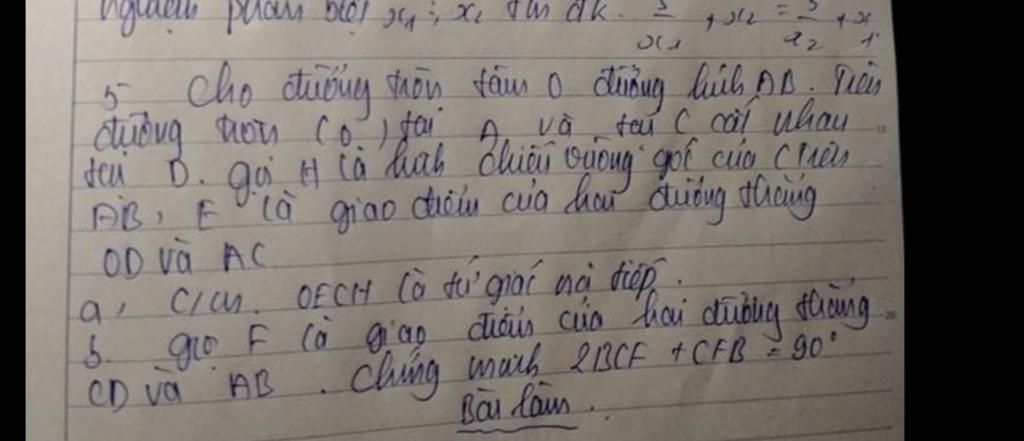 nghiệm phân biệt x1; x2 tm đk. 3/x1 + x2 = 3/x2 + x1
5 Cho đường tròn tâm O đường kính AB. Tiếp
đường tròn (O) tại A và tại C cắt nhau
tại D. gọi H là hình chiếu vuông góc của C trên
AB, E là giao điểm của hai đường thẳng
OD và AC
a, C/m. OECH là tứ giác nội tiếp.
b. gọi F là giao điểm của hai đường thẳng
CD và AB. Chứng minh 2BCF + CFB = 90°
Bài làm.